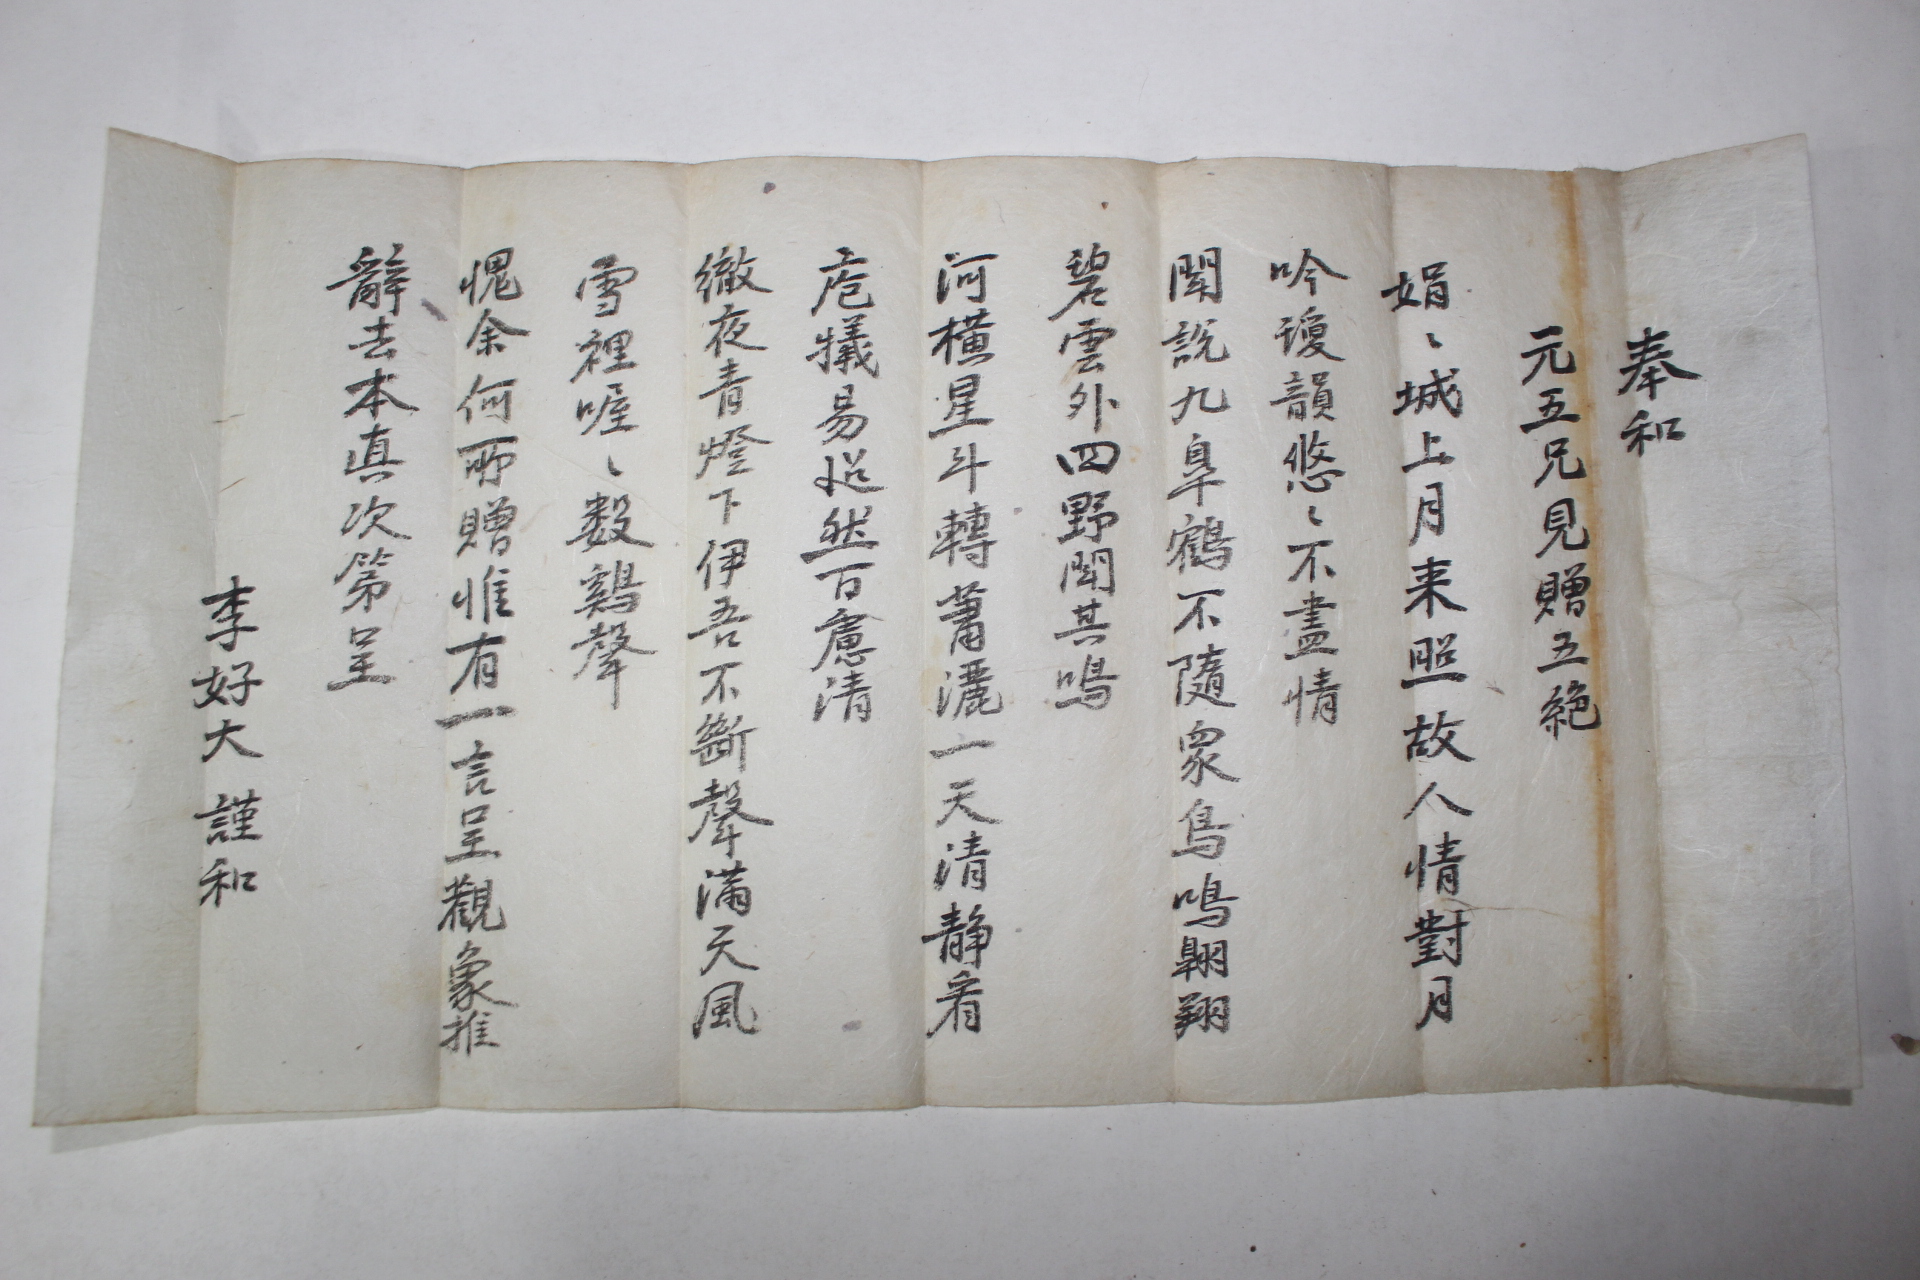 奉和
元五兄見贈五絶
娟〻城上月来照故人情對月
吟瓊韻悠〻不盡情
聞説九臯鶴不隨衆鳥鳴翺翔
碧雲外四野聞其鳴
河橫星斗轉蕭灑一天清静看
庖犧易悠然百慮清
徹夜青燈下伊吾不斷聲滿天風
雪裡喔〻数鷄聲
愧余何所贈惟有一言呈觀象推
辭去本真次第呈
李好大 謹和